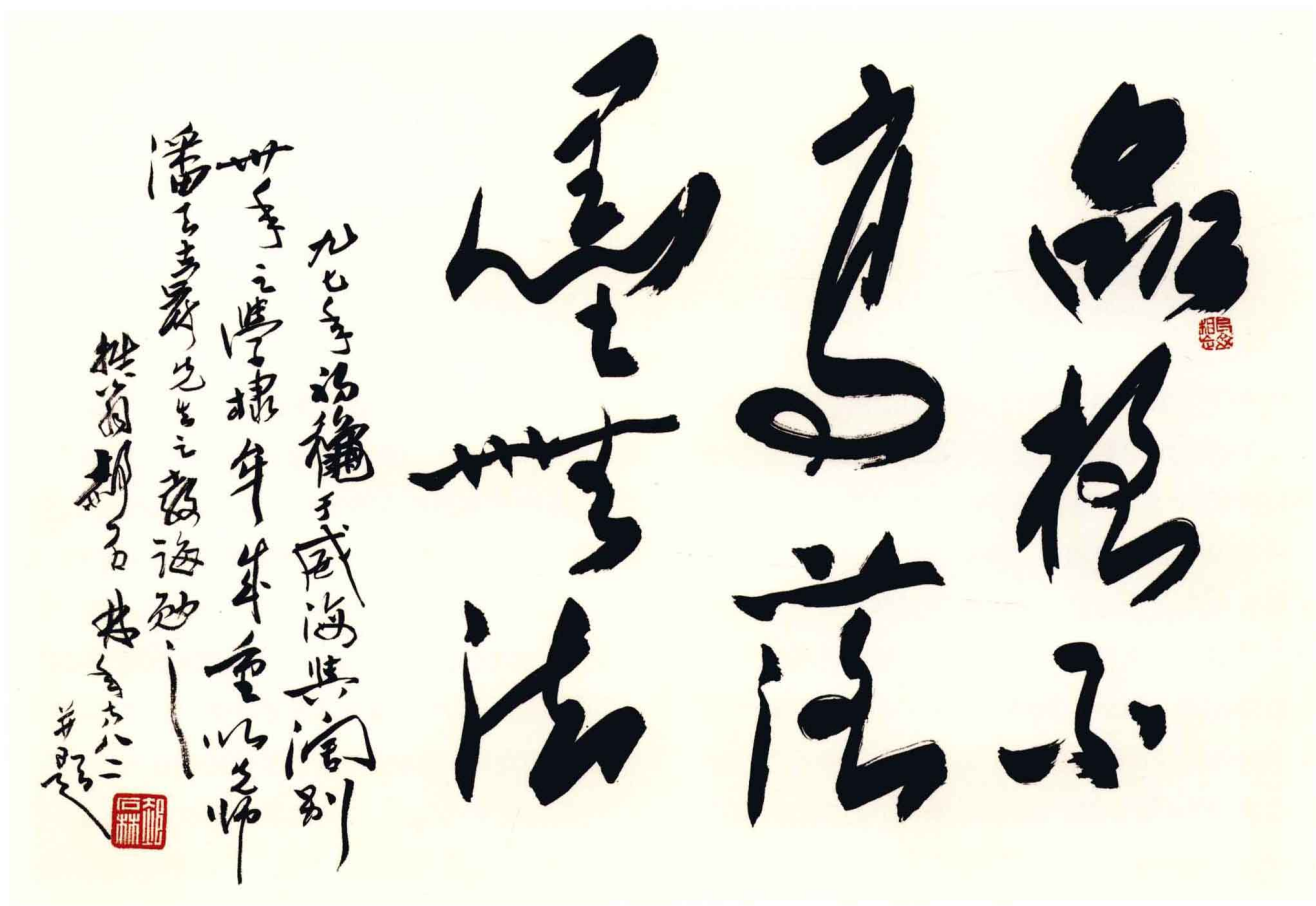 品格不
高落
墨無法
九七年初龝于威海與濶别
卅年之學棣牟成重以先師
潘天壽先生之教誨勉之
翁郝石林年八二
并題
郝石林